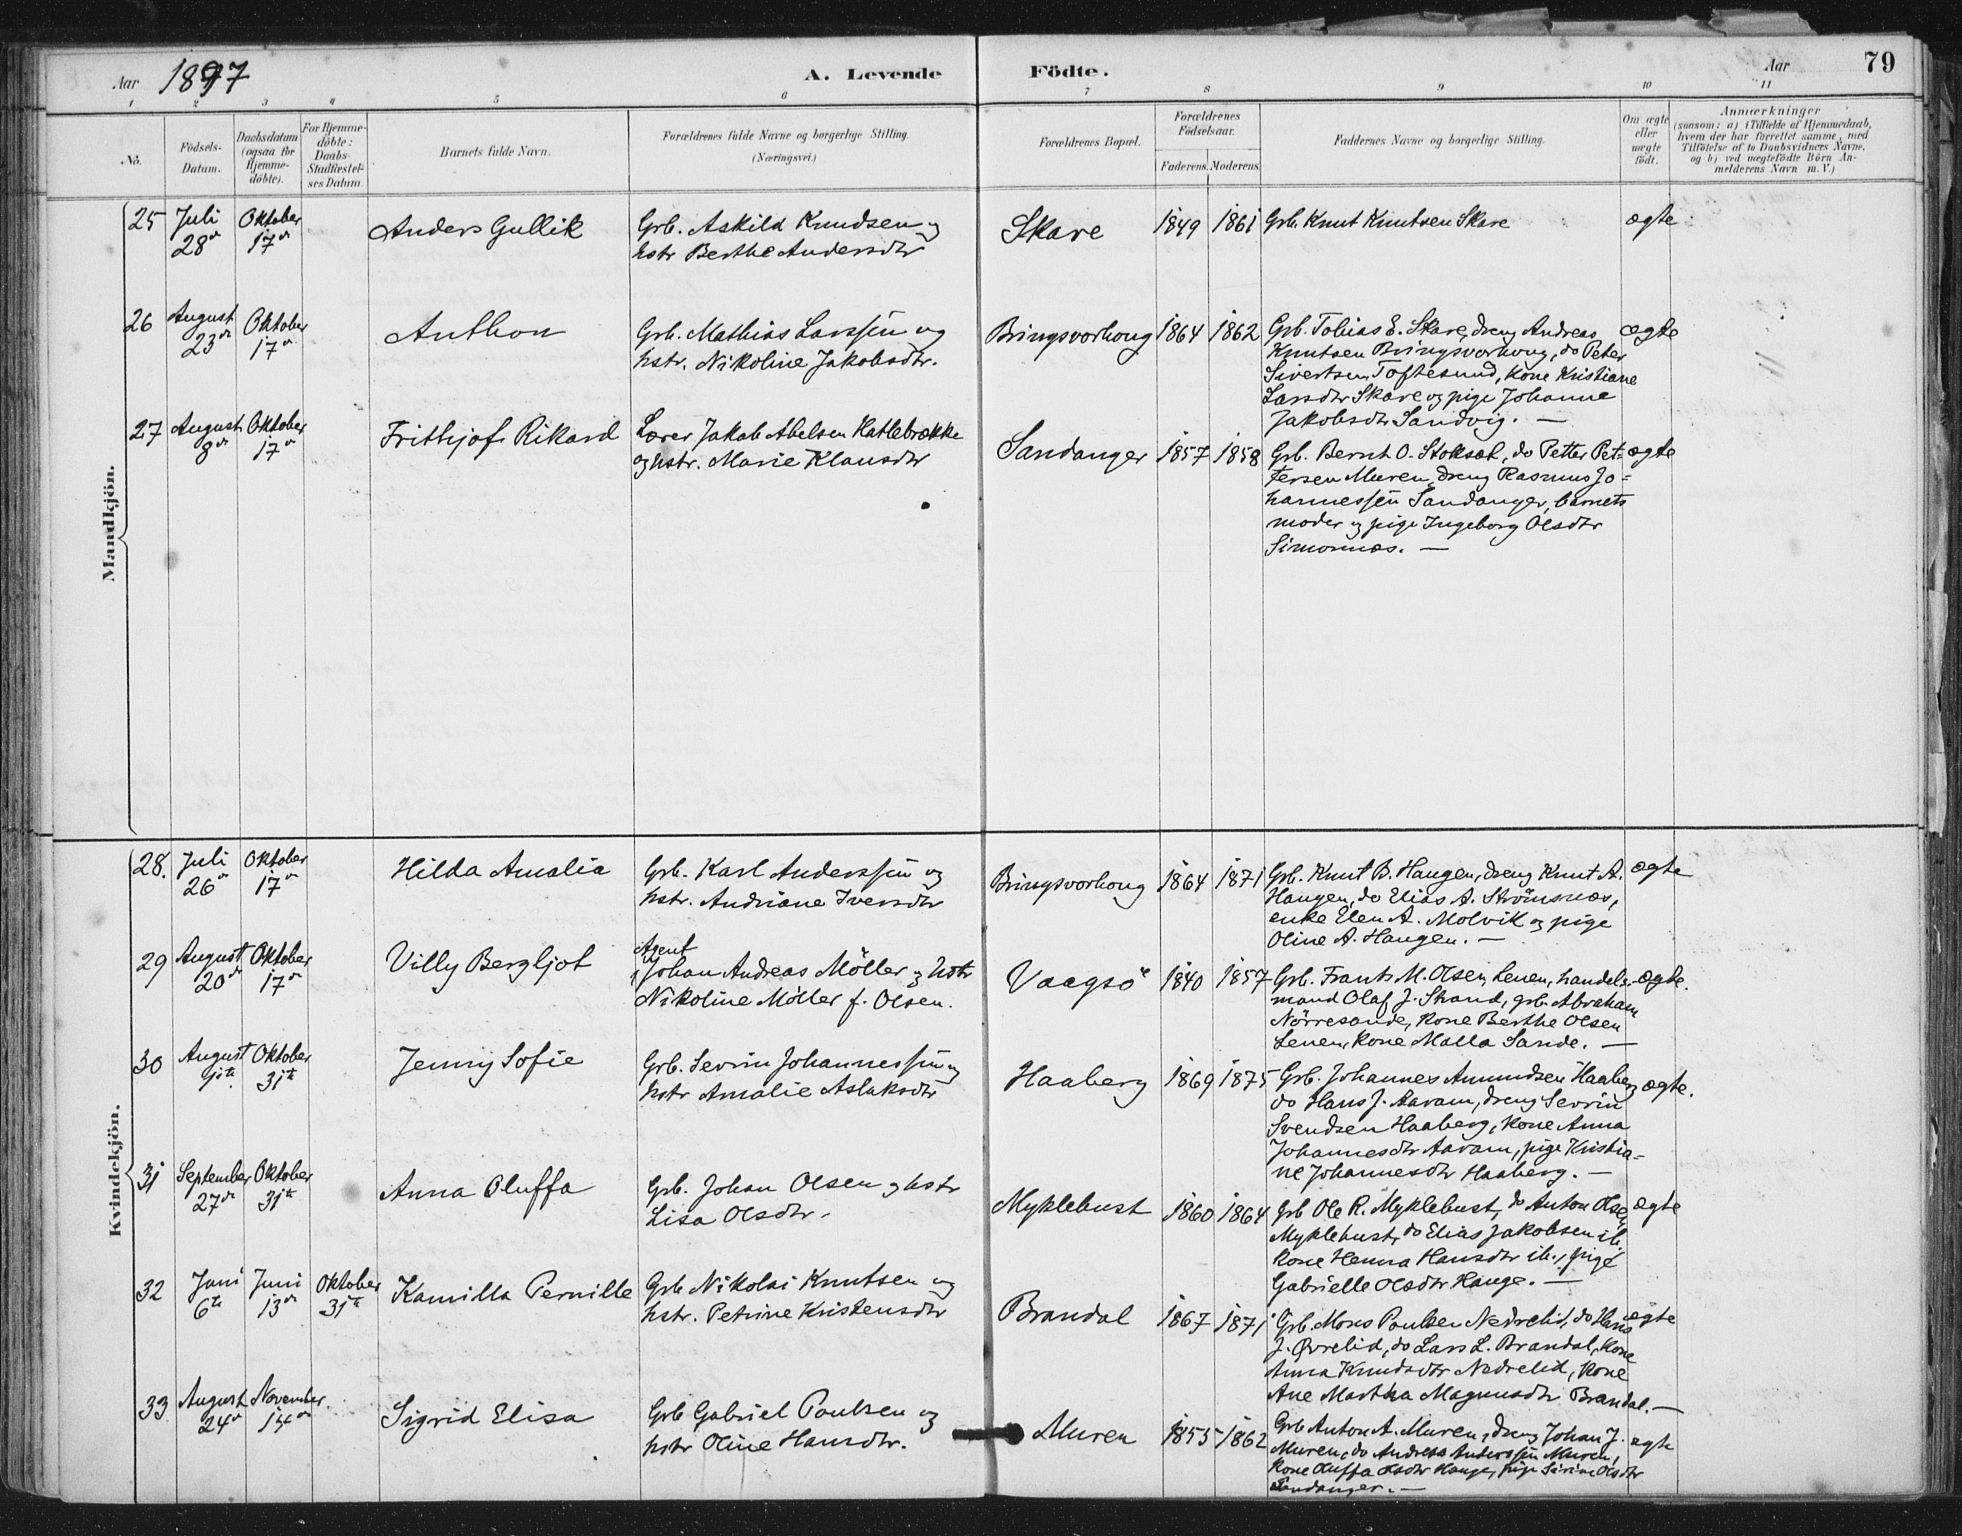 Aar 1897 A. Levende Födte. Aar 79
1 2 3 4 5 6 7 8 9 10 11
No.
Födsels-Datum.
Daabsdatum (ogsaa for Hjemmedöbte).
For Hjemmedöbte: Daabs-Stadfestelses Datum.
Barnets fulde Navn.
Forældrenes fulde Navne og borgerlige Stilling. (Næringsvei.)
Forældrenes Bopæl.
Forældrenes Födselsaar.
Faderens. Moderens.
Faddernes Navne og borgerlige Stilling.
Om ægte eller uægte födt.
Anmærkninger
(saasom: a) i Tilfælde af Hjemmedaab,
hvem der har forrettet samme, med
Tilföielse af to Daabsvidners Navne,
og b) ved uægtefödte Börn An-
melderens Navn m.V.)
Mandkjön.
25 Juli 28de Oktober 17de Anders Gullik
Grb. Askild Knudsen og
hstr Berthe Andersdtr
Skare 1849 1861 Grb. Knut Knutsen Skare ægte
26 August 23de Oktober 17de Anthon
Grb. Mathias Larssen og
hstr. Nikoline Jakobsdtr.
Bringsvorhoug 1864 1862
Grb. Tobias E. Skare, dreng Andreas
Knutsen Bringsvorhoug, do Peter
Sivertsen Toftesund, kone Kristiane
Larsdtr Skare og pige Johanne
Jakobsdtr Sandvig. —
ægte
27 August 8de Oktober 17de Frithjof Rikard
Lærer Jakob Abelsen Katlebrække
og hstr. Marie Klausdtr
Sandanger 1857 1858
Grb. Bernt O. Stoksæt, do Petter Pet-
tersen Muren, dreng Rasmus Jo-
hannessen Sandanger, barnets
moder og pige Ingeborg Olsdtr
Simonnæs. —
ægte
Kvindekjön.
28. Juli 26de Oktober 17de Hilda Amalia
Grb. Karl Anderssen og
hstr. Andriane Iversdtr
Bringsvorhoug 1864 1871
Grb. Knut B. Haugen, dreng Knut A.
Haugen, do Elias A. Strömsnæs,
enke Elen A. Molvik og pige
Oline A. Haugen. —
ægte
29 August 20de Oktober 17de Villy Bergljot
Agent
Johan Andreas Möller og hstr
Nikoline Möller f. Olsen.
Vaagsö 1840 1857
Grb. Frants M. Olsen Leuen, handels-
mand Olaf J. Strand, grb. Abraham
Nörresande, kone Berthe Olsen
Leuen, kone Malla Sande. —
ægte.
30 August 9de Oktober 31te Jenny Sofie
Grb. Sevrin Johannessen og
hstr Amalie Aslaksdtr
Haaberg 1869 1875
Grb. Johannes Amundsen Haaberg
do Hans J. Aaram, dreng Sevrin
Svendsen Haaberg, kone Anna
Johannesdtr Aaram, pige Kristia-
ne Johannesdtr Haaberg. —
ægte.
31 September 27de Oktober 31te Anna Oluffa
Grb. Johan Olsen og hstr
Lisa Olsdtr.
Myklebust 1860 1864
Grb Ole R. Myklebust, do Anton Olsen
Myklebust, do Elias Jakobsen ib.
kone Henna Hansdtr ib., pige
Gabrielle Olsdtr Hauge. —
ægte
32 Juni 6te Juni 13de Oktober 31te Kamilla Pernille
Grb Nikolai Knutsen og
hstr. Petrine Kristensdtr
Brandal 1867 1871
Grb. Mons Poulsen Nedrelid, do Hans
J. Øvrelid, do Lars L. Brandal, kone
Anna Knudsdtr Nedrelid, kone
Ane Martha Magnusdtr Brandal. —
ægte
33 August 24de November 14de Sigrid Elisa
Grb Gabriel Poulsen og
hstr Oline Hansdtr.
Muren 1855 1862
Grb Anton A. Muren, dreng Johan J.
Muren, do Andreas Anderssen Muren,
kone Oluffa Olsdtr Hauge, pige Sirine Olsdtr
Sandanger. —
ægte